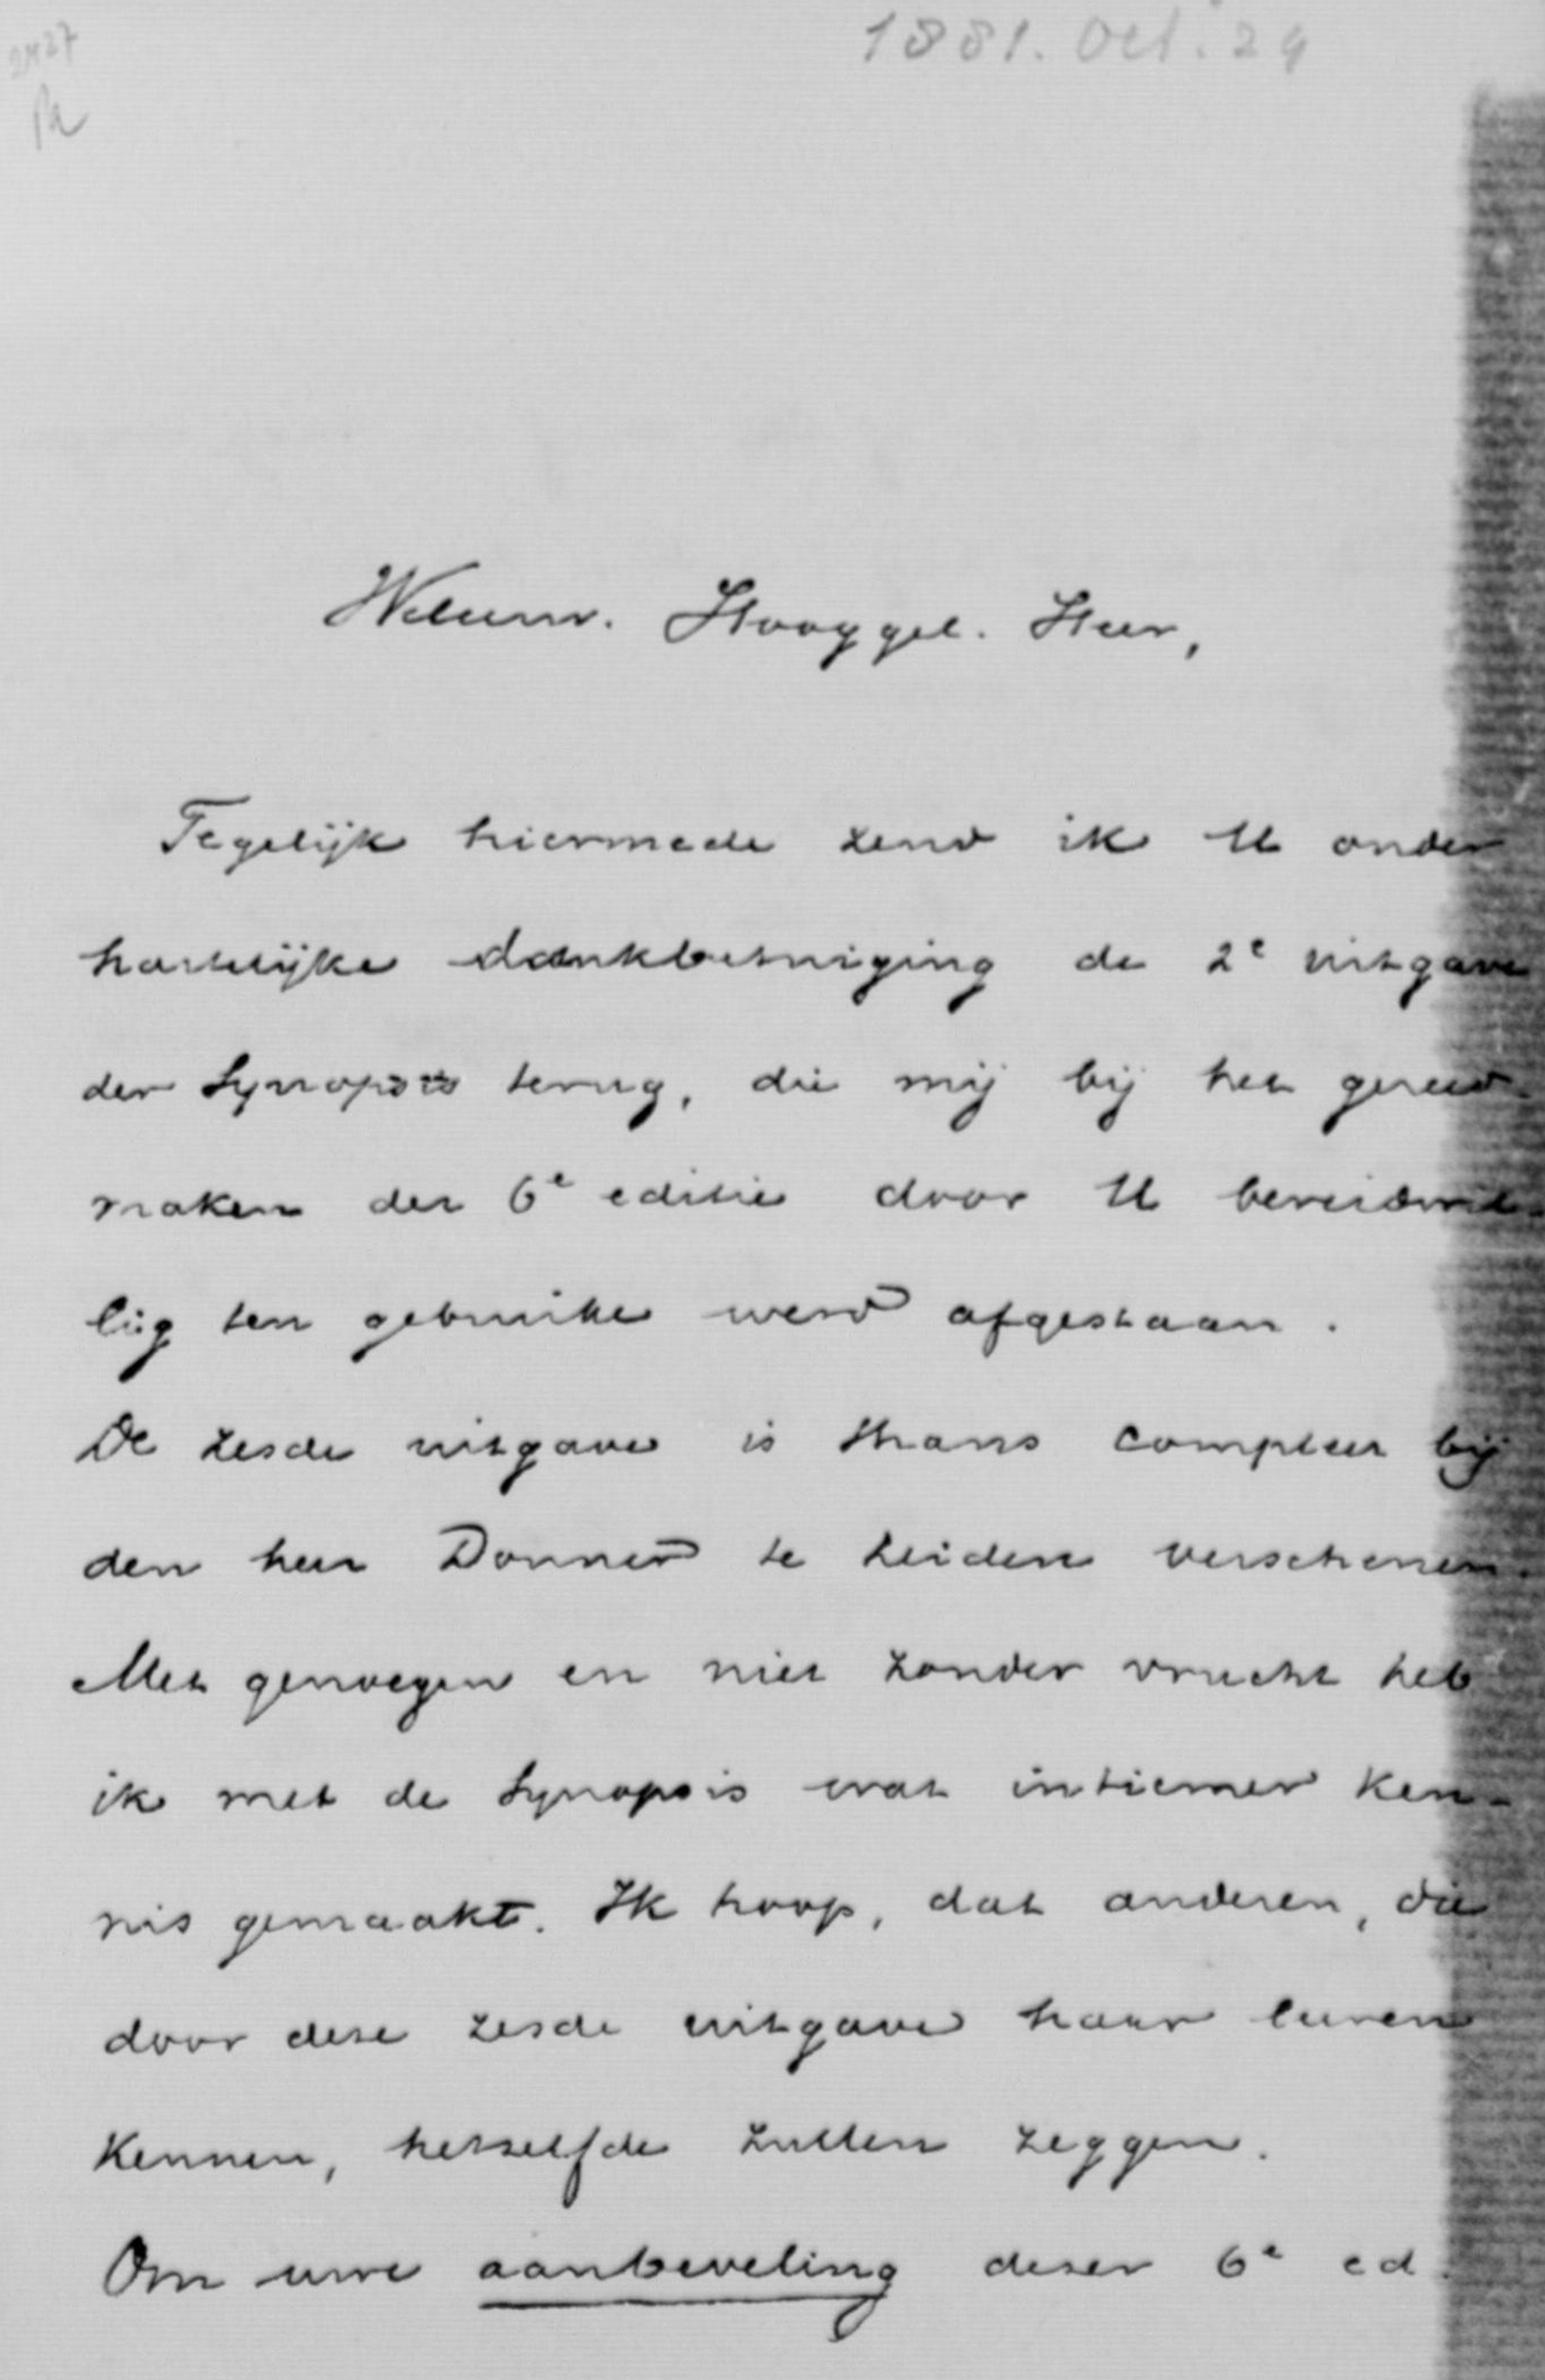 1881. Oct. 29
2427
Weleerw. Hooggel. Heer,
Tegelijk hiermede zend ik U onder
hartelijke dankbetuiging de 2e uitgave
der Synopsis terug, die mij bij het gereed-
maken der 6e editie door U bereidwil-
lig ten gebruike werd afgestaan.
De zesde uitgave is thans compleet bij
den heer Donner te Leiden verschenen.
Met genoegen en niet zonder vrucht heb
ik met de Synopsis wat intiemer ken-
nis gemaakt. Ik hoop, dat anderen, die
door deze zesde uitgave haar leeren
kennen, hetzelfde zullen zeggen.
Om uwe aanbeveling dezer 6e ed.